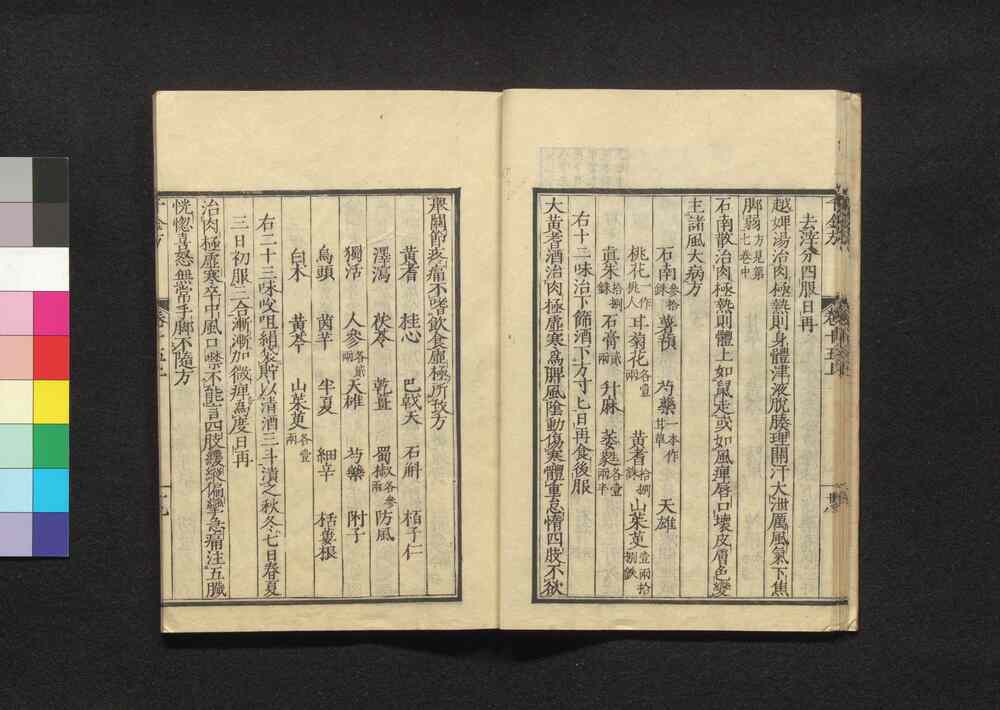 去滓分四服日再
越婢湯治肉極熱則身體津液脫腠理開汗大泄厲風氣下焦
脚弱方見第七卷中
石南散治肉極熱則體上如鼠走或如風痺唇口壞皮膚色變
主諸風大病方
石南叁拾銖 薯蕷 芍藥一本作甘草 天雄
桃花一作桃人 甘菊花各壹兩 黃耆拾捌銖 山茱萸壹兩拾捌銖
真朱拾捌銖 石膏貳兩 升麻 葳蕤各壹兩半
右十二味治下篩酒下方寸匕日再食後服
大黃耆酒治肉極虛寒為脾風陰動傷寒體重怠惰四肢不欲
舉關節疼痛不嗜飲食虛極所致方
黃耆 桂心 巴戟天 石斛 栢子仁
澤瀉 茯苓 乾薑 蜀椒各叁兩 防風
獨活 人參各貳兩 天雄 芍藥 附子
烏頭 茵芋 半夏 細辛 栝蔞根
白术 黃芩 山茱萸各壹兩
右二十三味㕮咀絹袋貯以清酒三斗漬之秋冬七日春夏
三日初服三合漸漸加微痺為度日再
治肉極虛寒卒中風口噤不能言四肢緩縱偏攣急痛注五臟
恍惚喜怒無常手脚不隨方